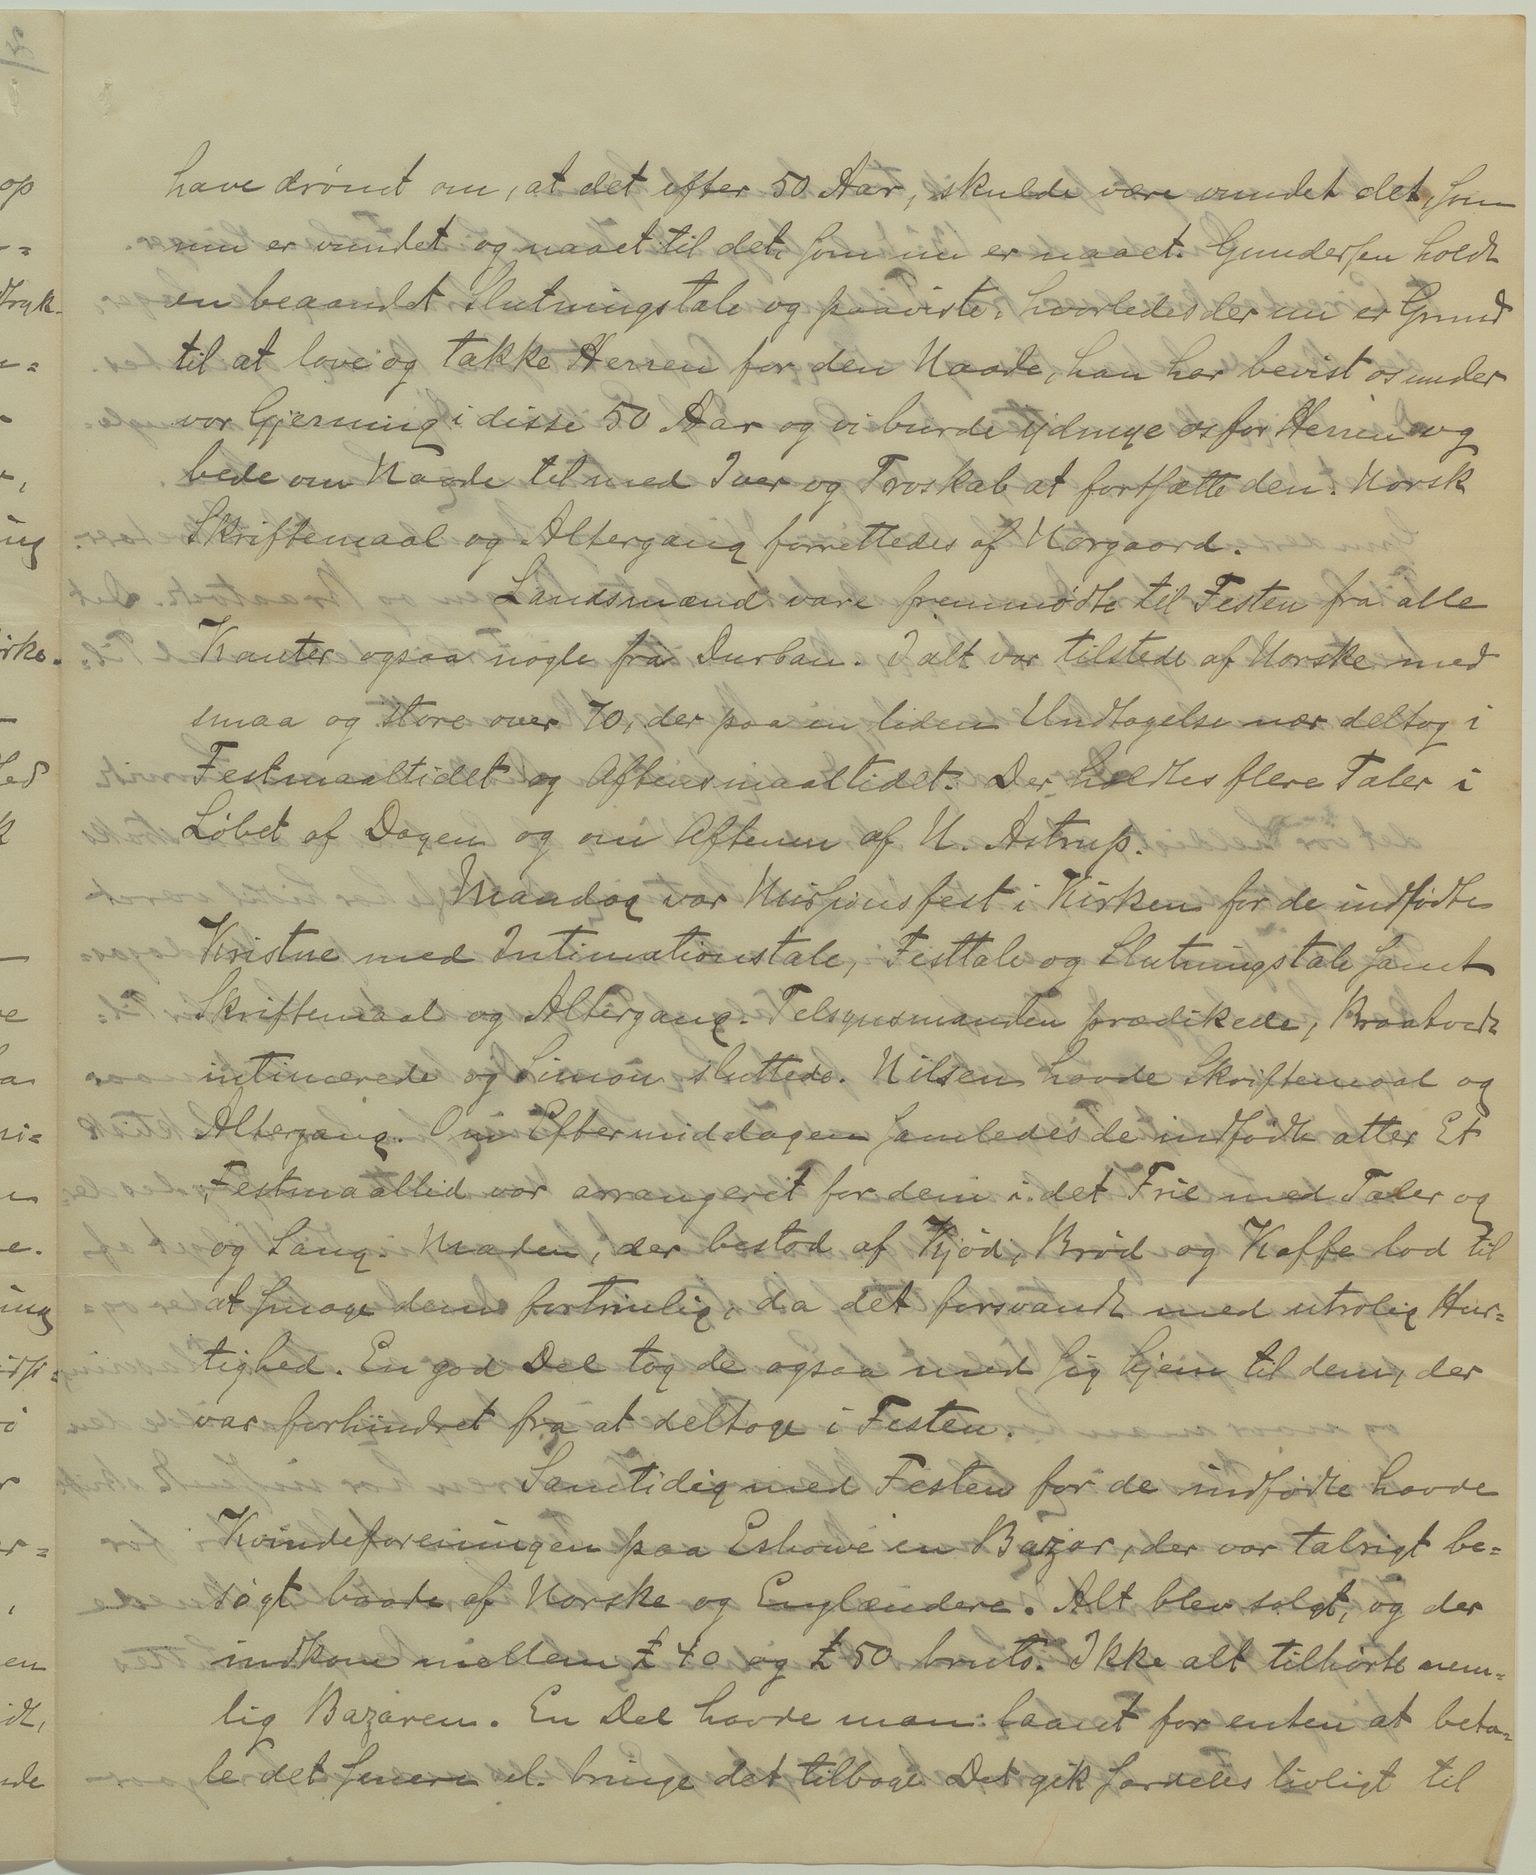 have drömt om, at det efter 50 Aar, skulde være vundet det, som
nu er vundet og naaet til det, som nu er naaet. Gundersen holdt
en beaandet Slutningstale og paaviste, hvorledes der nu er Grund
til at love og takke Herren for den Naade, han har bevist os under
vor Gjerning i disse 50 Aar og vi burde ydmyge os for Herren og
bede om Naade til med Iver og Troskab at fortsætte den. Norsk
Skriftemaal og Altergang forrettedes af Norgaard.
Landsmænd vare fremmødte til Festen fra alle
Kanter ogsaa nogle fra Durban. I alt var tilstede af Norske med
smaa og store over 70, der paa en liden Undtagelse nær deltog i
Festmaaltidet og Aftensmaaltidet. Der holdtes flere Taler i
Löbet af Dagen og om Aftenen af N. Astrup.
Mandag var Missionsfest i Kirken for de indfødte
Kristne med Intimationstale, Festtale og Slutningstale samt
Skriftemaal og Altergang. Tilsynsmanden prædikede, Braatvedt
intimerede og Simon sluttede. Nilsen havde Skriftemaal og
Altergang. Om Eftermiddagen samledes de indfødte atter Et
Festmaaltid var arrangeret for dem i det Frie med Taler og
og Sang. Maden, der bestod af Kjöd, Bröd og Kaffe lod til
at smage dem fortrinlig, da det forsvandt med utrolig Hur=
tighed. En god Del tog de ogsaa med sig hjem til dem, der
var forhindret fra at deltage i Festen.
Samtidig med Festen for de indfødte havde
Kvindeforeningen paa Eshowe en Bazar, der var talrigt be=
søgt baade af Norske og Englændere. Alt blev solgt, og der
indkom mellem £ 40 og £ 50 bruto. Ikke alt tilhørte nem=
lig Bazaren. En Del havde man laant for enten at beta=
le det senere el. bringe det tilbage. Det gik særdeles livligt til